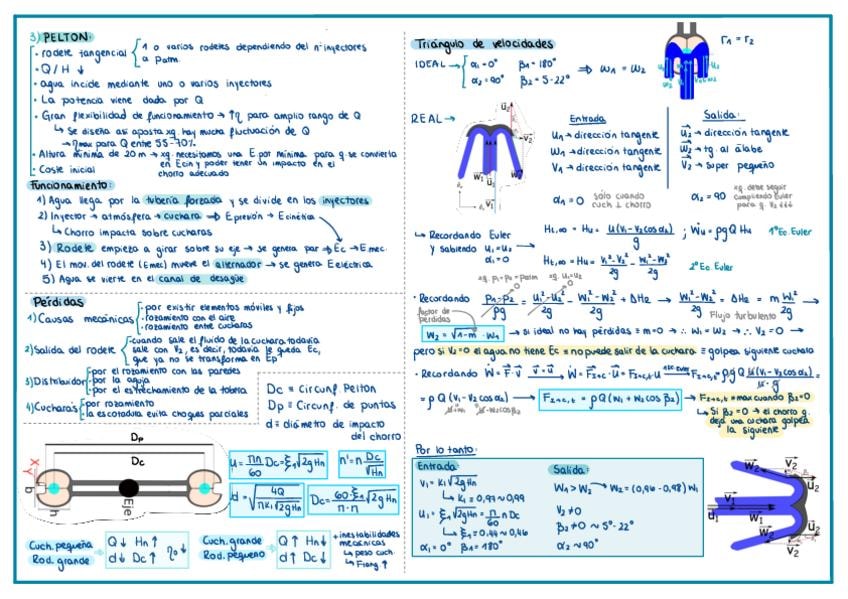 3) PELTON:
· rodete tangencial { 1 o varios rodetes dependiendo del nº injectores
a Patm.
· Q / H ↓
· agua incide mediante uno o varios injectores
· La potencia viene dada por Q
· Gran flexibilidad de funcionamiento → ↑η para amplio rango de Q
↳ Se diseña así aposta xq. hay mucha fluctuación de Q
→ ηmax para Q entre 55-70%
· Altura mínima de 20 m → xq. necesitamos una E por mínima para q. se convierta
en Ecin y poder tener un impacto en el
chorro adecuado
· Coste inicial
Funcionamiento:
1) Agua llega por la tubería forzada y se divide en los injectores
2) Injector → atmósfera → cuchara ⇒ Epresión → Ecinética
↳ Chorro impacta sobre cucharas
3) Rodete empieza a girar sobre su eje → se genera par → Ec → Emec.
4) El mov. del rodete (Emec) mueve el alternador → se genera Eeléctrica
5) Agua se vierte en el canal de desagüe
Pérdidas
1) Causas mecánicas { · por existir elementos móviles y fijos
· rozamiento con el aire
· rozamiento entre cucharas
2) Salida del rodete { · cuando sale el fluido de la cuchara, todavía
sale con V2, es decir, todavía le queda Ec,
que ya no se transforma en Ep
3) Distribuidor { · por el rozamiento con las paredes
· por la aguja
· por el estrechamiento de la tobera
4) Cucharas { · por rozamiento
· la escotadura evita choques parciales
Dc ≡ Circunf. Pelton
Dp ≡ Circunf. de puntas
d ≡ diámetro de impacto
del chorro
Dp
Dc
X-Y
b
h
Eje
u = πn/60 Dc = ξ1 √2gHn
n' = n Dc/√Hn
d = √(4Q/πK1√2gHn)
Dc = 60·ξ1/π·n √2gHn
Cuch. pequeña
Rod. grande
Q ↓ Hn ↑
d ↓ Dc ↑
η0 ↓
Cuch. grande
Rod. pequeño
Q ↑ Hn ↓
d ↑ Dc ↓
+ inestabilidades
mecánicas
↳ peso cuch.
↳ Ftang ↑
Triángulo de velocidades
r1 = r2
IDEAL → { α1 = 0° β1 = 180°
α2 = 90° β2 = 5-22° ⇒ W1 = W2
REAL →
Entrada
U1 → dirección tangente
W1 → dirección tangente
V1 → dirección tangente
α1 = 0 sólo cuando
cuch ⊥ chorro
Salida:
U2 → dirección tangente
W2 → tg. al álabe
V2 → super pequeño
α2 = 90 xq. debe seguir
cumpliendo Euler
para q. V2 ↓↓↓
↳ Recordando Euler
y sabiendo u1 = u2
α1 = 0
Ht,∞ = Hu = u(V1 - V2 cosα2)/g ; Ẇu = ρgQHu 1ª Ec. Euler
Ht,∞ = Hu = (V1² - V2²)/2g - (W1² - W2²)/2g 2ª Ec. Euler
xq. p1 = p2 = patm xq. u1 = u2
· Recordando (p1 - p2)/ρg = (u1² - u2²)/2g - (W1² - W2²)/2g + ΔH2 → (W1² - W2²)/2g = ΔH2 = m W1²/2g →
factor de
pérdidas
Flujo turbulento
W2 = √1-m · W1 → si ideal no hay pérdidas ≡ m=0 → ∴ W1 = W2 → ∴ V2 = 0 →
pero si V2 = 0 el agua no tiene Ec ≡ no puede salir de la cuchara ≡ golpea siguiente cuchara
= ρQ(V1 - V2cosα2) → F2→c,t = ρQ(W1 + W2cosβ2) → F2→c,t = max cuando β2 = 0
↳ Si β2 = 0 → el chorro q.
deja una cuchara golpea
la siguiente
Por lo tanto:
Entrada:
V1 = K1√2gHn
↳ K1 = 0,97 ~ 0,99
u1 = ξ1√2gHn = n/60 π Dc
↳ ξ1 = 0,44 ~ 0,46
α1 = 0° β1 = 180°
Salida:
W1 > W2 → W2 = (0,96 - 0,98) W1
V2 ≠ 0
β2 ≠ 0 ~ 5°-22°
α2 ~ 90°